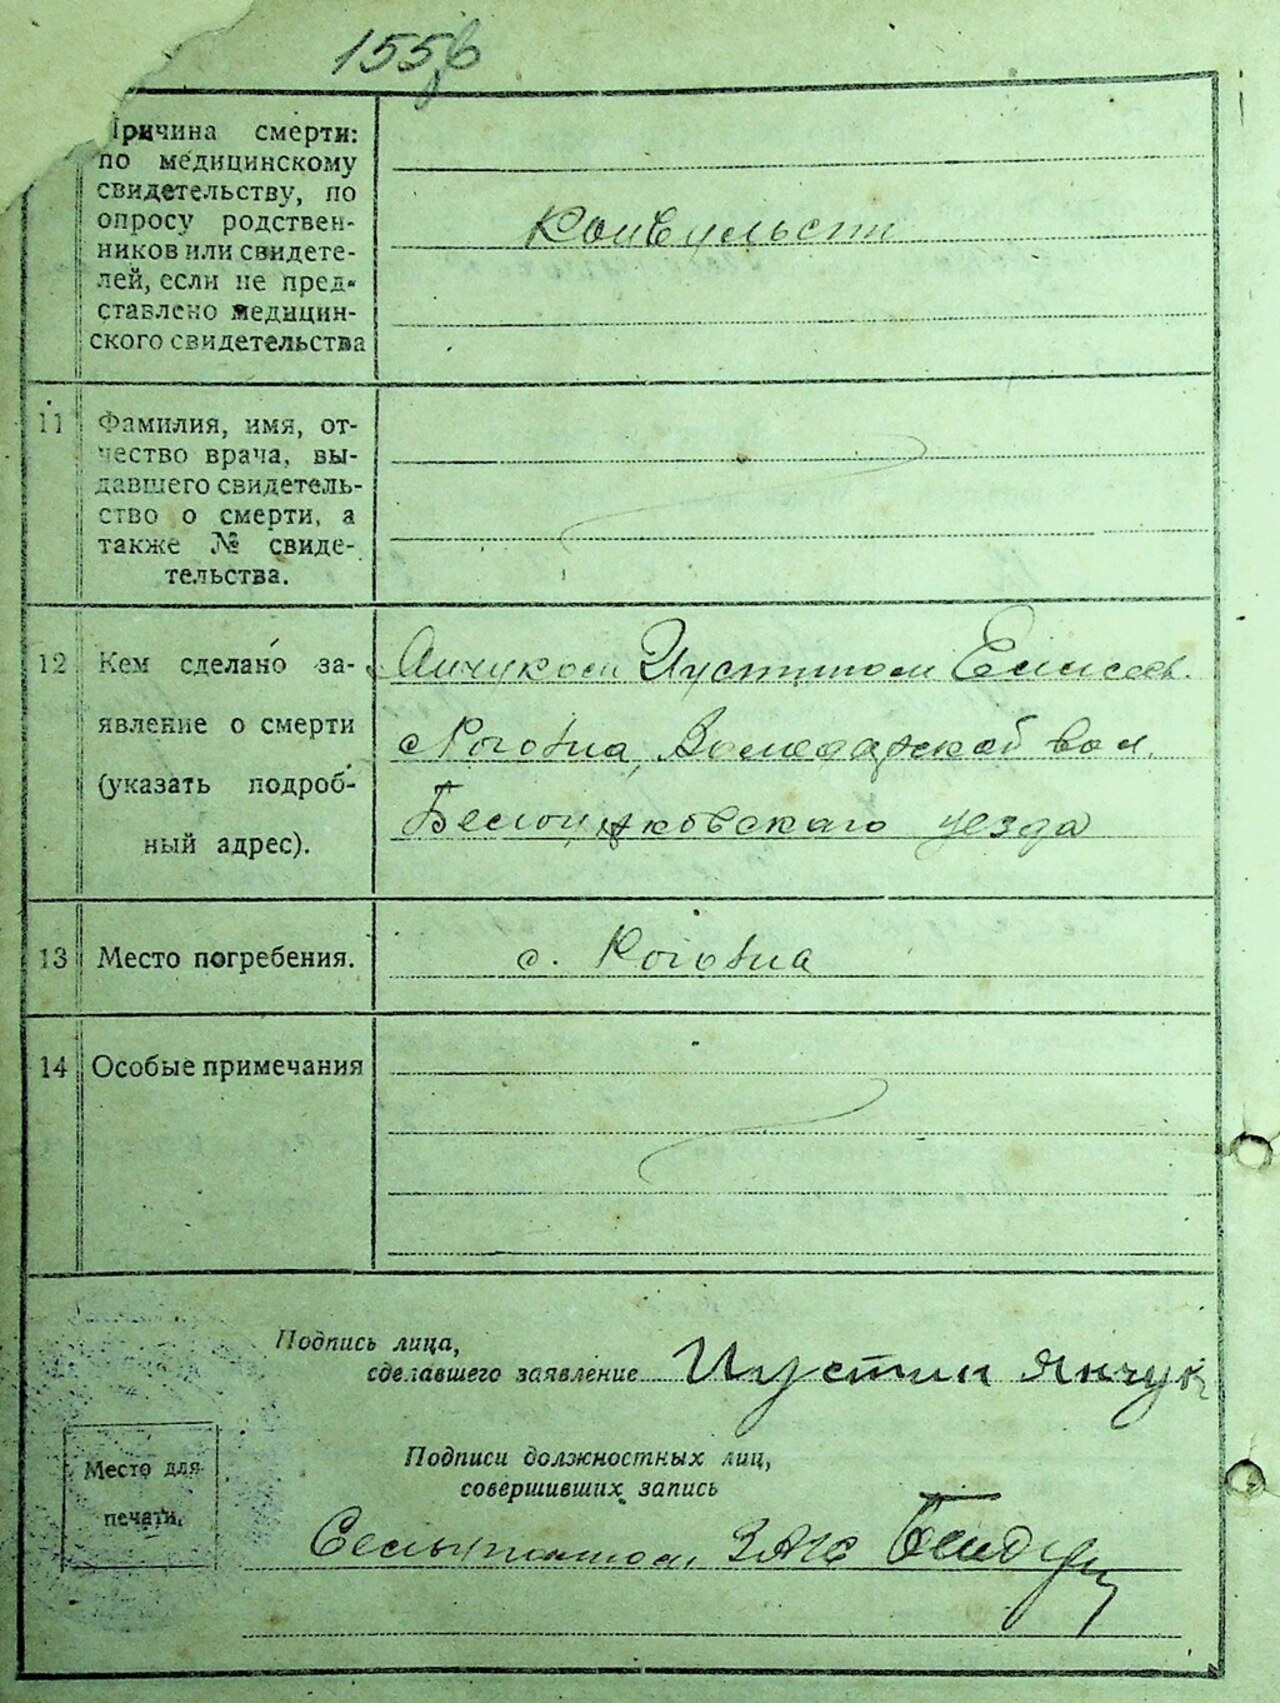 155б
Причина смерти:
по медицинскому
свидетельству, по
опросу родствен-
ников или свидете-
лей, если не пред-
ставлено медицин-
ского свидетельства
Конвульсии
11 Фамилия, имя, от-
чество врача, вы-
давшего свидетель-
ство о смерти, а
также № свиде-
тельства.
12 Кем сделано за-
явление о смерти
(указать подроб-
ный адрес).
Янчуком Иустином Елисеев.
с Рогозна, Володарской вол.
Белоцерковскаго уезда
13 Место погребения.
с. Рогозна
14 Особые примечания
Подпись лица,
сделавшего заявление Иустин Янчук
Подписи должностных лиц,
совершивших запись
Место для
печати.
ЗАГС